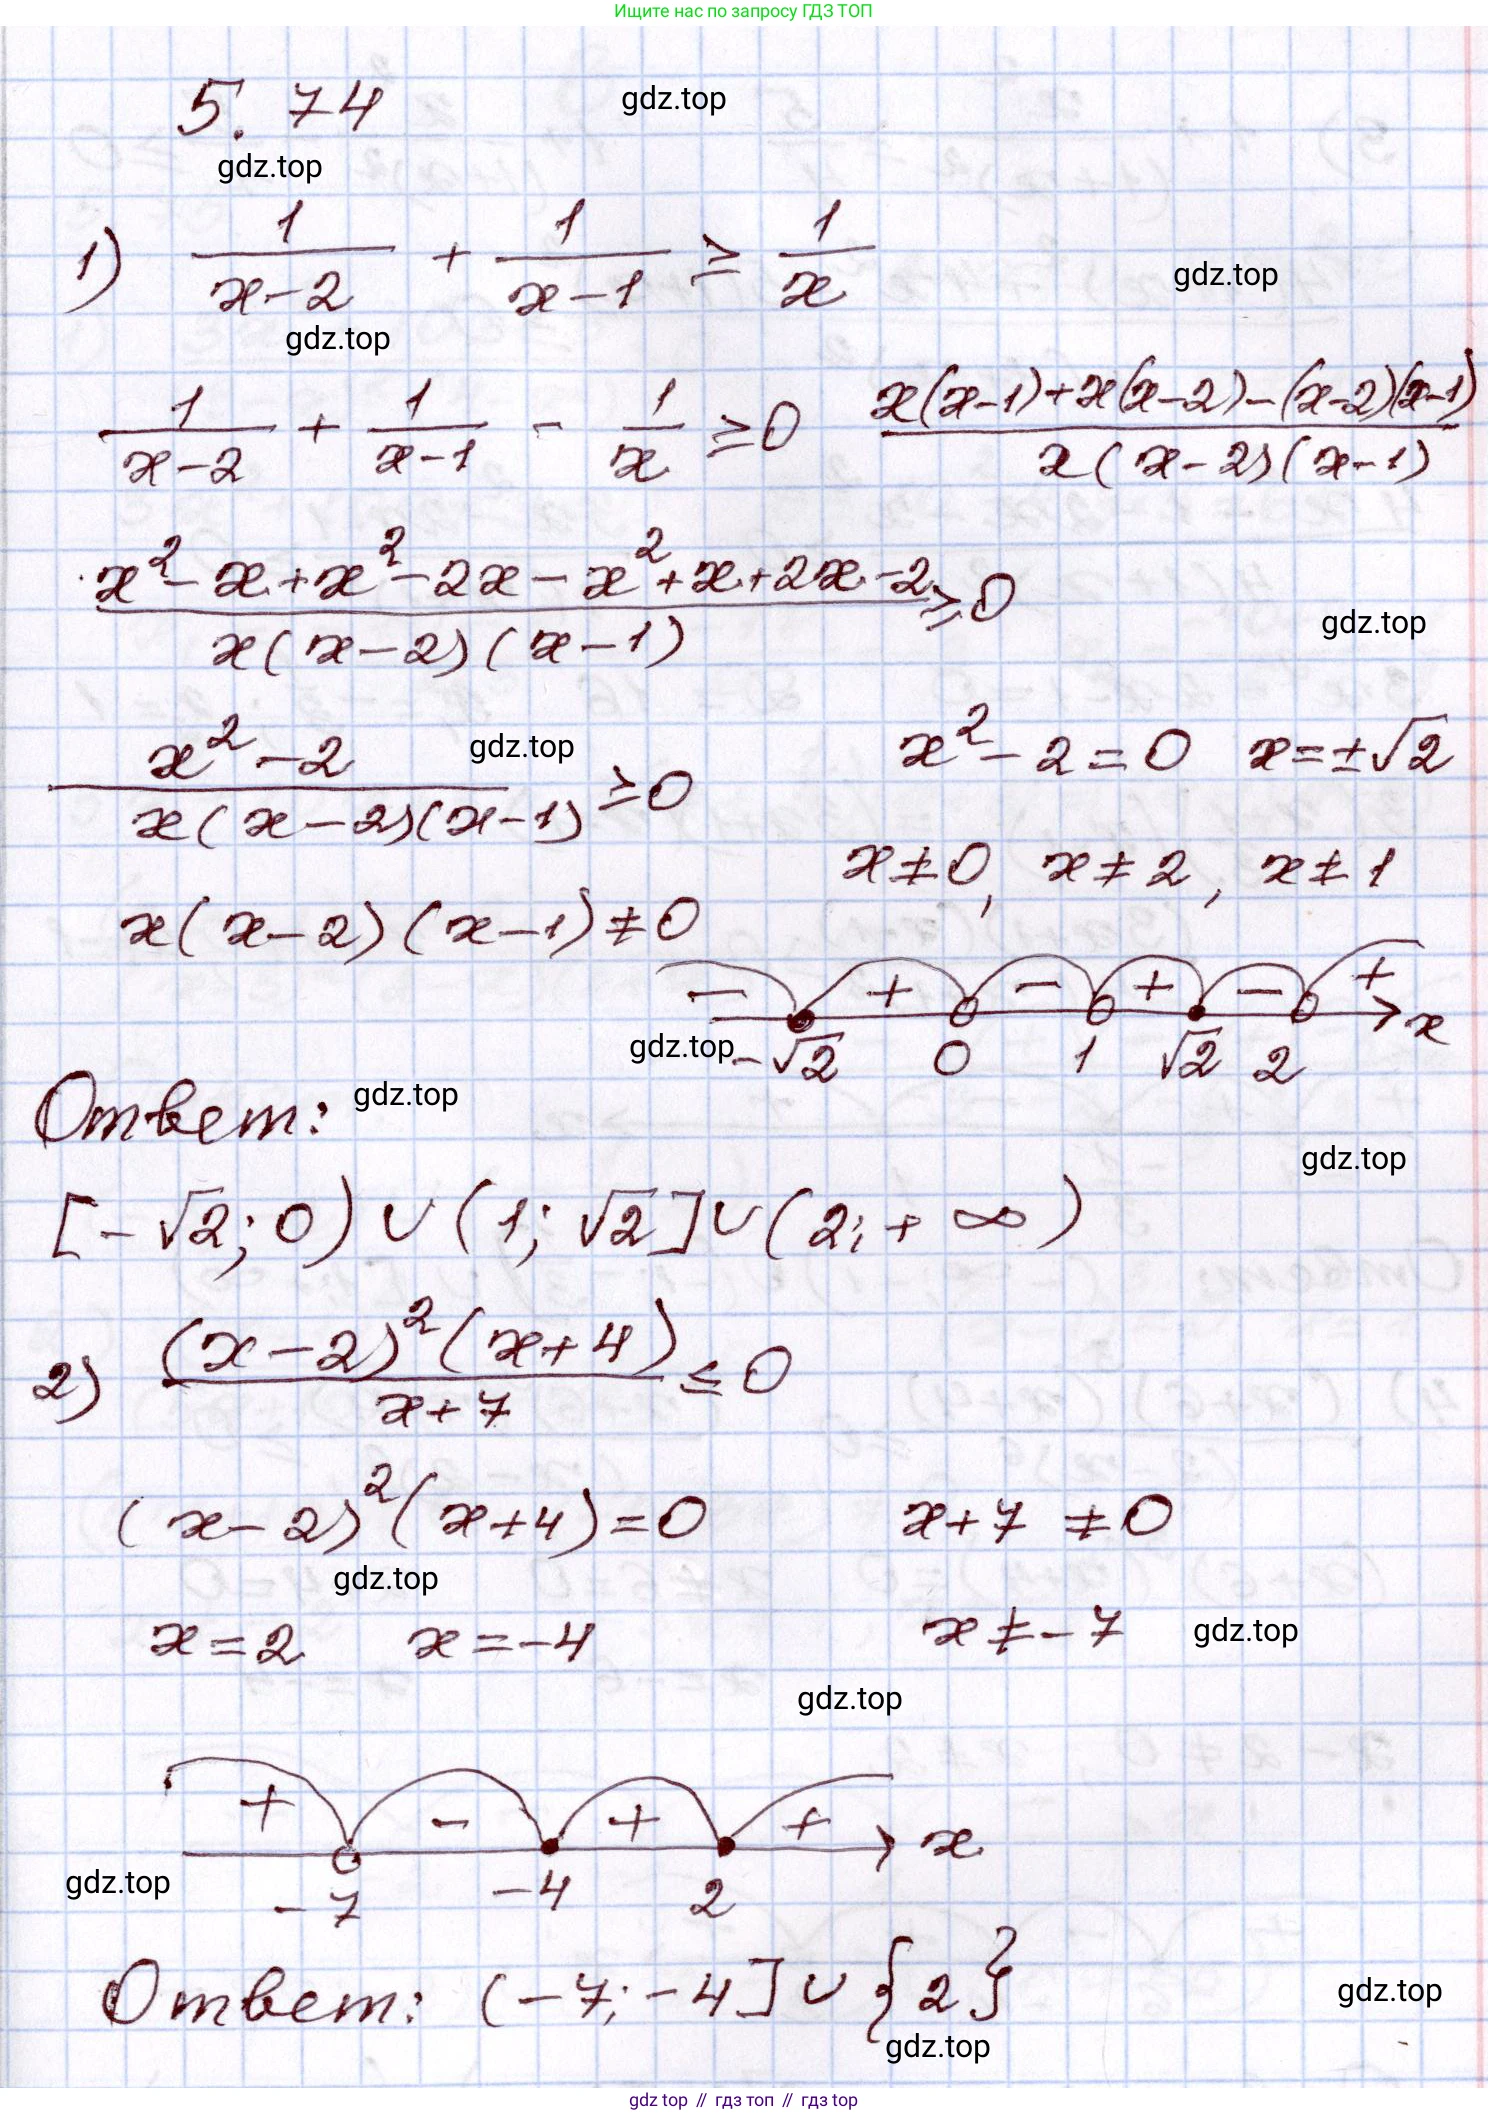 Ищите нас по запросу ГДЗ ТОП
5.74
gdz.top
gdz.top
1) 1/(x-2) + 1/(x-1) ≥ 1/x
gdz.top
gdz.top
1/(x-2) + 1/(x-1) - 1/x ≥0 (x(x-1)+x(x-2)-(x-2)(x-1))/(x(x-2)(x-1))
(x²-x+x²-2x-x²+x+2x-2)/(x(x-2)(x-1)) ≥0
gdz.top
(x²-2)/(x(x-2)(x-1)) ≥0 x²-2=0 x=±√2
gdz.top
x≠0, x≠2, x≠1
x(x-2)(x-1)≠0
- + - + - +
-√2 0 1 √2 2 x
gdz.top
Ответ:
gdz.top
gdz.top
[-√2; 0) ∪ (1; √2] ∪ (2; +∞)
2) ((x-2)²(x+4))/(x+7) ≤0
(x-2)²(x+4)=0 x+7 ≠0
gdz.top
x=2 x=-4 x≠-7
gdz.top
gdz.top
+ - + +
-7 -4 2 x
gdz.top
Ответ: (-7; -4] ∪ {2}
gdz.top
gdz.top
gdz top // гдз топ // гдз top